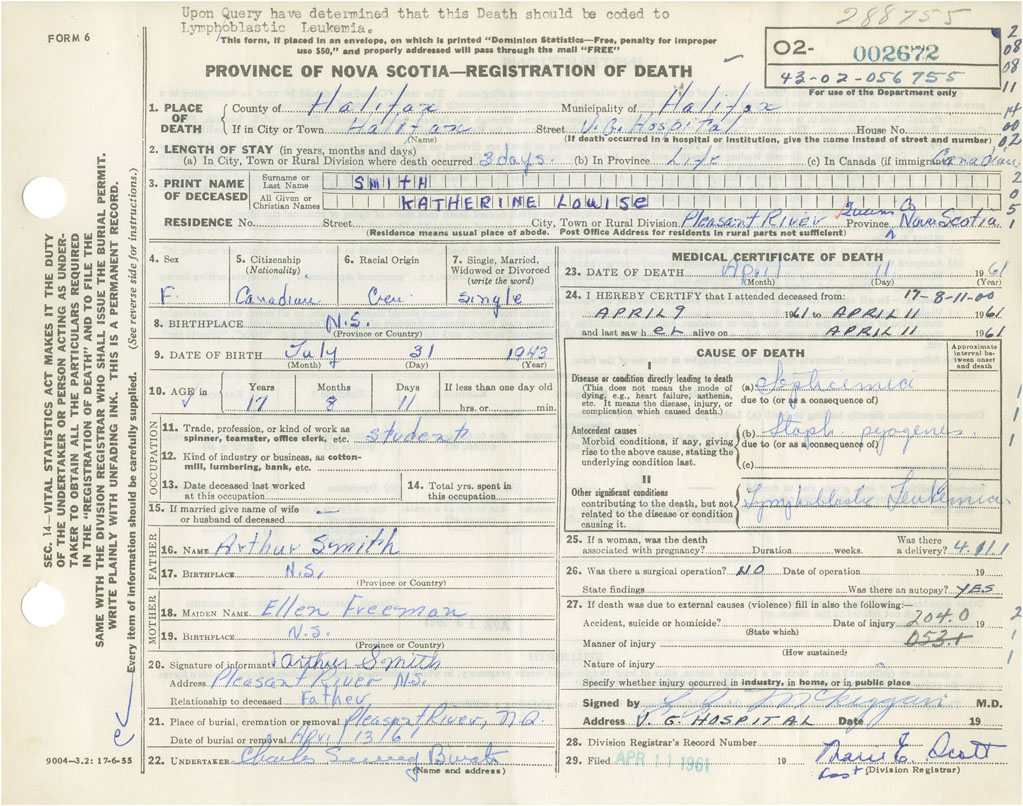 Upon Query have determined that this Death should be coded to
Lymphoblastic Leukemia.
288755
FORM 6
This form, if placed in an envelope, on which is printed "Dominion Statistics—Free, penalty for improper
use $50," and properly addressed will pass through the mail "FREE"
02- 002672
43-02-056755
For use of the Department only
PROVINCE OF NOVA SCOTIA—REGISTRATION OF DEATH
1. PLACE OF DEATH County of Halifax Municipality of Halifax
If in City or Town Halifax Street V.G. Hospital House No.
(Name) (If death occurred in a hospital or institution, give the name instead of street and number)
2. LENGTH OF STAY (in years, months and days)
(a) In City, Town or Rural Division where death occurred 3 days. (b) In Province Life (c) In Canada (if immigrant) Canadian
3. PRINT NAME OF DECEASED Surname or Last Name SMITH
All Given or Christian Names KATHERINE LOUISE
RESIDENCE No. Street City, Town or Rural Division Pleasant River Queens Co Province Nova Scotia
(Residence means usual place of abode. Post Office Address for residents in rural parts not sufficient)
4. Sex F.
5. Citizenship (Nationality) Canadian
6. Racial Origin
7. Single, Married, Widowed or Divorced (write the word) single
8. BIRTHPLACE N.S.
(Province or Country)
9. DATE OF BIRTH July 31 1943
(Month) (Day) (Year)
10. AGE in Years Months Days If less than one day old
17 8 11 hrs. or min.
OCCUPATION
11. Trade, profession, or kind of work as spinner, teamster, office clerk, etc. student
12. Kind of industry or business, as cotton-mill, lumbering, bank, etc.
13. Date deceased last worked at this occupation
14. Total yrs. spent in this occupation
15. If married give name of wife or husband of deceased —
FATHER
16. NAME Arthur Smith
17. BIRTHPLACE N.S.
(Province or Country)
MOTHER
18. MAIDEN NAME Ellen Freeman
19. BIRTHPLACE N.S.
(Province or Country)
20. Signature of informant Arthur Smith
Address Pleasant River N.S.
Relationship to deceased Father
21. Place of burial, cremation or removal Pleasant River, N.S.
Date of burial or removal April 13/61
22. UNDERTAKER Charles
(Name and address)
MEDICAL CERTIFICATE OF DEATH
23. DATE OF DEATH April 11 1961
(Month) (Day) (Year)
24. I HEREBY CERTIFY that I attended deceased from: 17-8-11-00
APRIL 9 1961 to APRIL 11 1961
and last saw her alive on APRIL 11 1961
CAUSE OF DEATH
Approximate interval between onset and death
I
Disease or condition directly leading to death
(This does not mean the mode of dying, e.g., heart failure, asthenia, etc. It means the disease, injury, or complication which caused death.)
(a) Septicemia
due to (or as a consequence of)
Antecedent causes
Morbid conditions, if any, giving rise to the above cause, stating the underlying condition last.
(b) Staph. pyogenes
due to (or as a consequence of)
(c)
II
Other significant conditions
contributing to the death, but not related to the disease or condition causing it.
Lymphoblastic Leukemia
25. If a woman, was the death associated with pregnancy? Duration weeks. Was there a delivery? 4.11.1
26. Was there a surgical operation? NO Date of operation 19
State findings Was there an autopsy? YES
27. If death was due to external causes (violence) fill in also the following:—
Accident, suicide or homicide? Date of injury 204.0
(State which)
Manner of injury 053.1
(How sustained)
Nature of injury
Specify whether injury occurred in industry, in home, or in public place
Signed by M.D.
Address V. G. HOSPITAL Date 19
28. Division Registrar's Record Number
29. Filed APR 11 1961 19 Scott
(Division Registrar)
9004—3,2: 17-6-55
SEC. 14—VITAL STATISTICS ACT MAKES IT THE DUTY
OF THE UNDERTAKER OR PERSON ACTING AS UNDER-
TAKER TO OBTAIN ALL THE PARTICULARS REQUIRED
IN THE "REGISTRATION OF DEATH" AND TO FILE THE
SAME WITH THE DIVISION REGISTRAR WHO SHALL ISSUE THE BURIAL PERMIT.
WRITE PLAINLY WITH UNFADING INK. THIS IS A PERMANENT RECORD.
Every item of information should be carefully supplied. (See reverse side for instructions.)